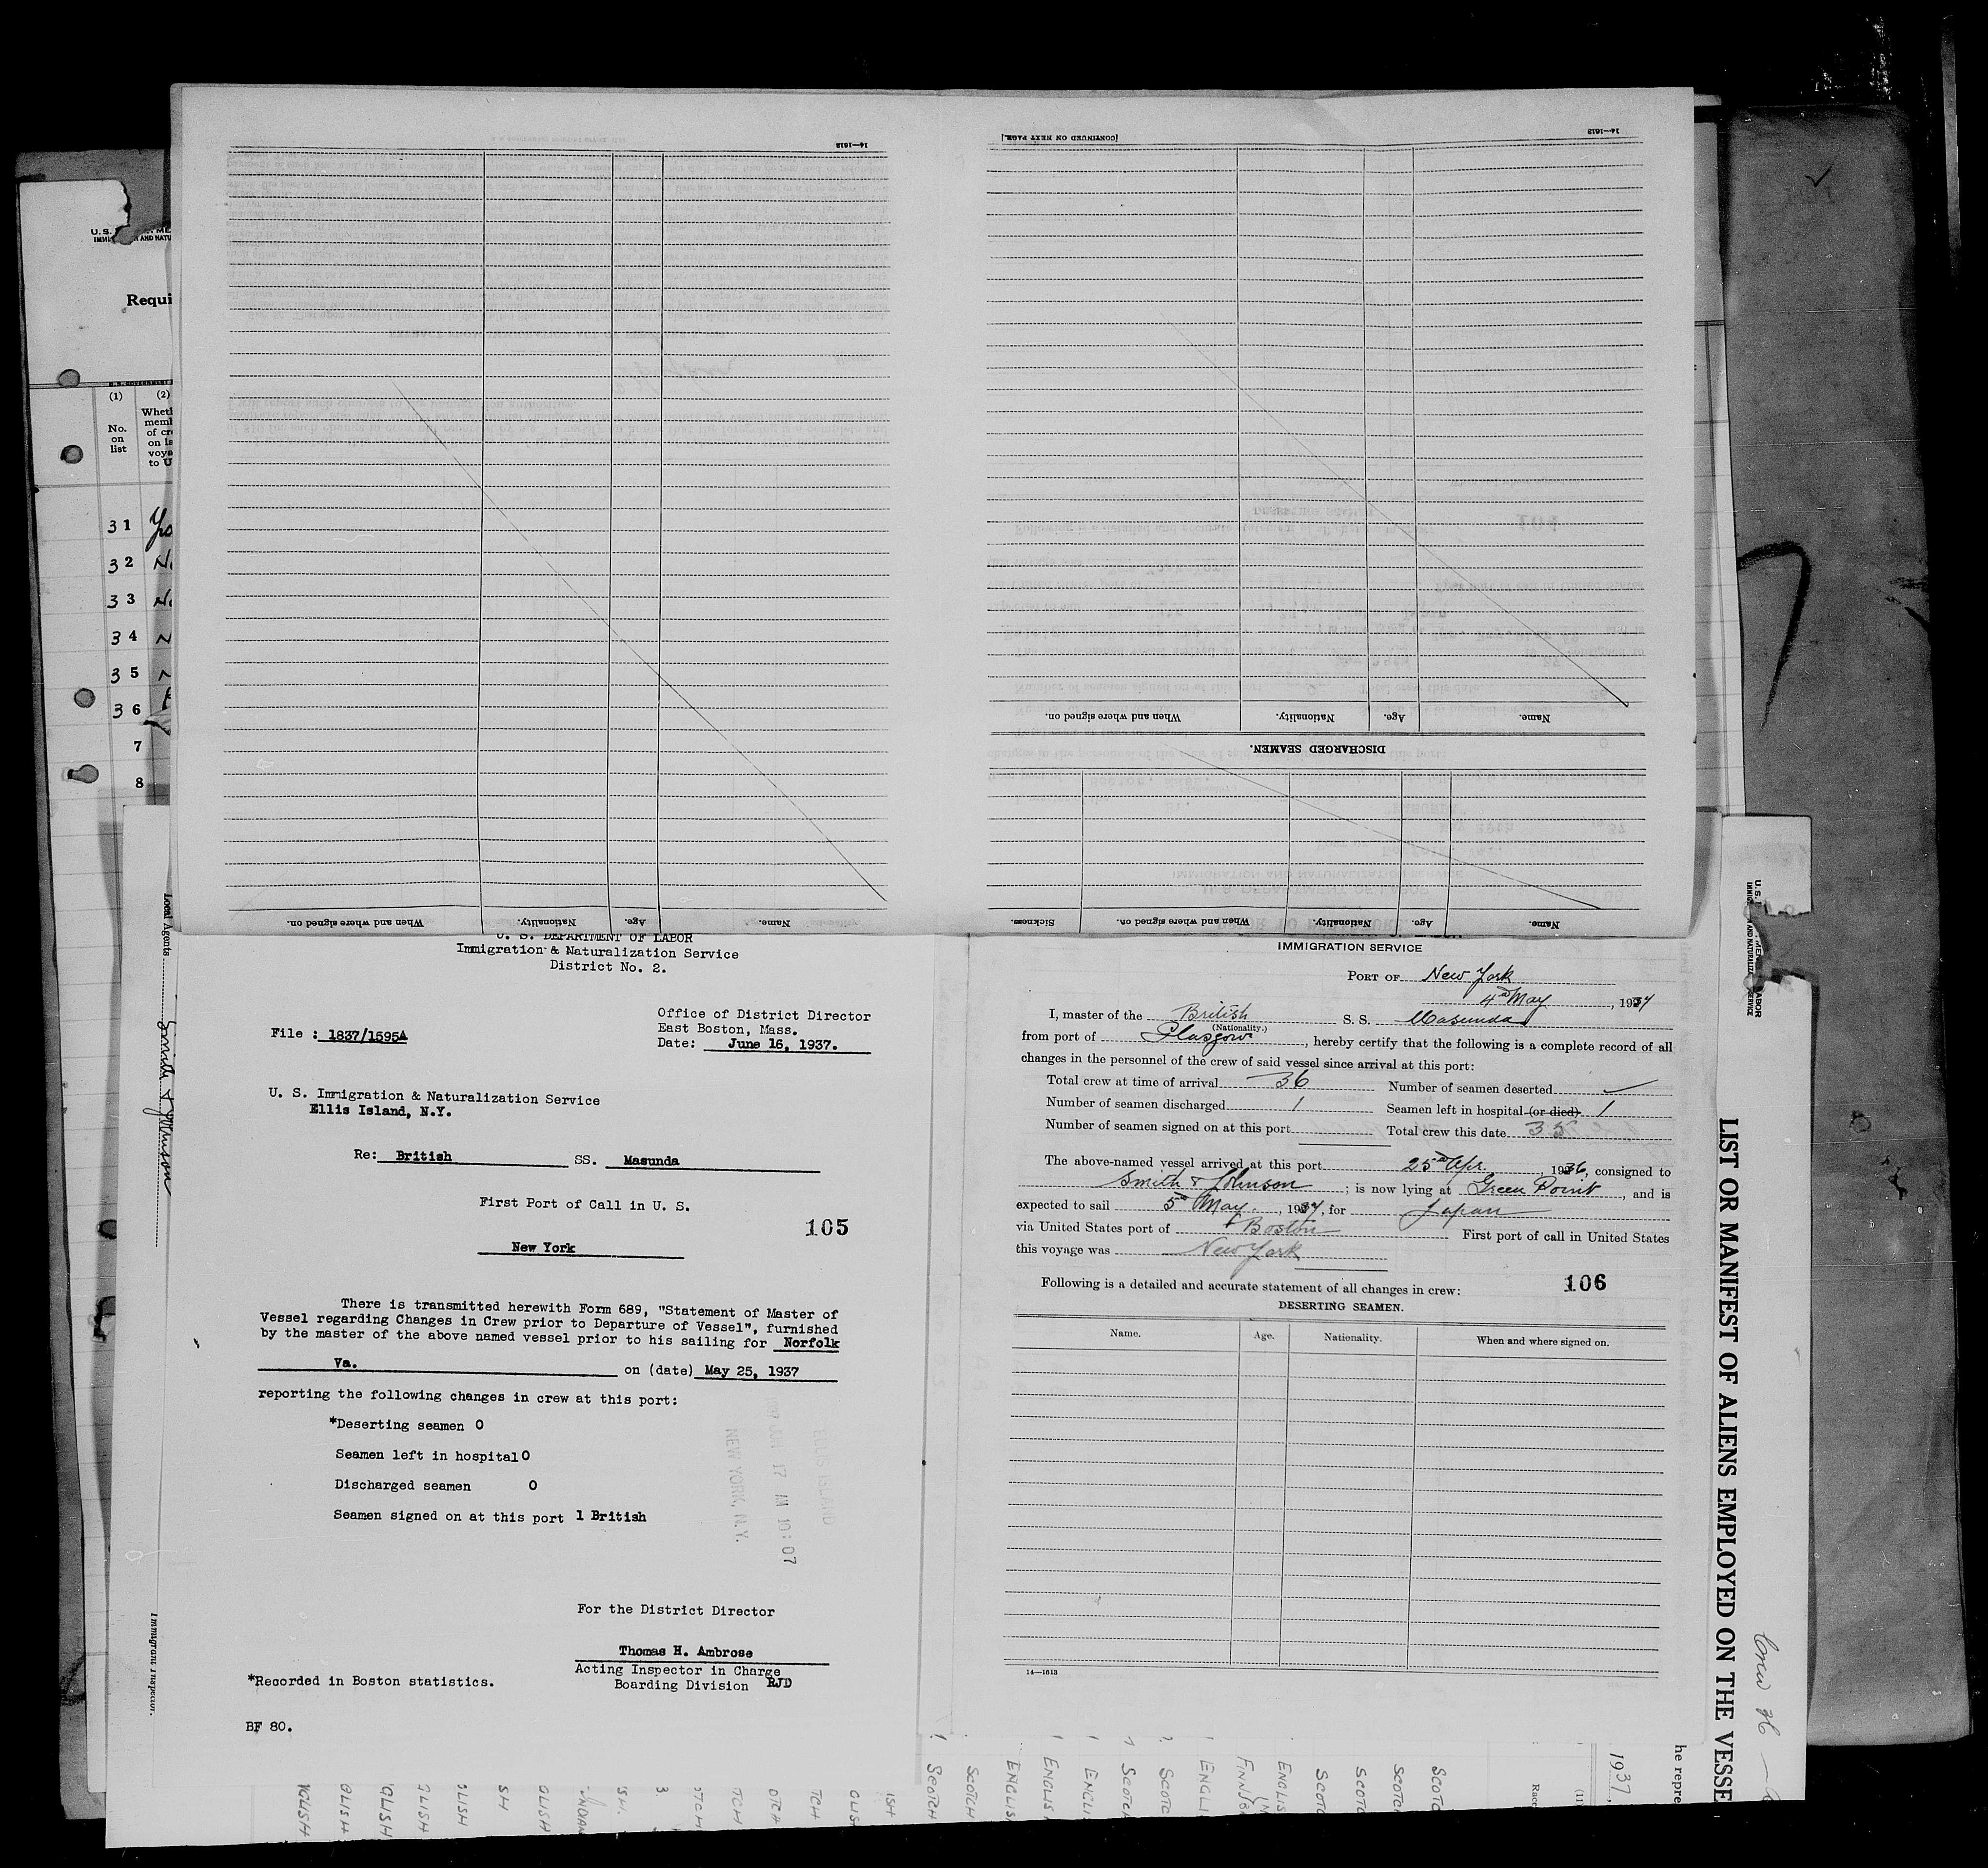 [CONTINUED ON NEXT PAGE.]
14—1613
14—1613
Name.
Age.
Nationality.
When and where signed on.
DISCHARGED SEAMEN.
Name.
Age.
Nationality.
When and where signed on.
Name.
Age.
Nationality.
When and where signed on.
Sickness.
U.S.
Requi
(1)
(2)
No.
on
list
31
32
33
34
35
36
7
8
Local Agents
Smith & Johnson
Immigrant Inspector.
U. S. DEPARTMENT OF LABOR
Immigration & Naturalization Service
District No. 2.
Office of District Director
East Boston, Mass.
Date: June 16, 1937.
File : 1837/1595A
U. S. Immigration & Naturalization Service
Ellis Island, N.Y.
Re: British SS. Masunda
First Port of Call in U. S.
105
New York
There is transmitted herewith Form 689, "Statement of Master of
Vessel regarding Changes in Crew prior to Departure of Vessel", furnished
by the master of the above named vessel prior to his sailing for Norfolk
Va. on (date) May 25, 1937
reporting the following changes in crew at this port:
*Deserting seamen 0
Seamen left in hospital 0
Discharged seamen 0
Seamen signed on at this port 1 British
ELLIS ISLAND
17 AM 10:07
NEW YORK, N.Y.
For the District Director
Thomas H. Ambrose
Acting Inspector in Charge
Boarding Division RJD
*Recorded in Boston statistics.
BF 80.
IMMIGRATION SERVICE
PORT OF New York
4th May, 1937
I, master of the British S. S. Masunda
(Nationality.)
from port of Glasgow, hereby certify that the following is a complete record of all
changes in the personnel of the crew of said vessel since arrival at this port:
Total crew at time of arrival 36 Number of seamen deserted
Number of seamen discharged 1 Seamen left in hospital (or died) 1
Number of seamen signed on at this port Total crew this date 35
The above-named vessel arrived at this port 25th Apr., 1936, consigned to
Smith & Johnson; is now lying at Green Point, and is
expected to sail 5th May, 1937, for Japan
via United States port of Boston First port of call in United States
this voyage was New York
Following is a detailed and accurate statement of all changes in crew:
106
DESERTING SEAMEN.
Name. Age. Nationality. When and where signed on.
14—1613
LIST OR MANIFEST OF ALIENS EMPLOYED ON THE VESSE
Crew 36
he repre
1937,
(11)
Race
SCOTCH
SCOTCH
ENGLIS
ENGLIS
ENGLIS
SCOTC
SCOTC
ENGLI
FINN
ENGLIS
SCOTC
SCOTC
SCOTC
SCOTC